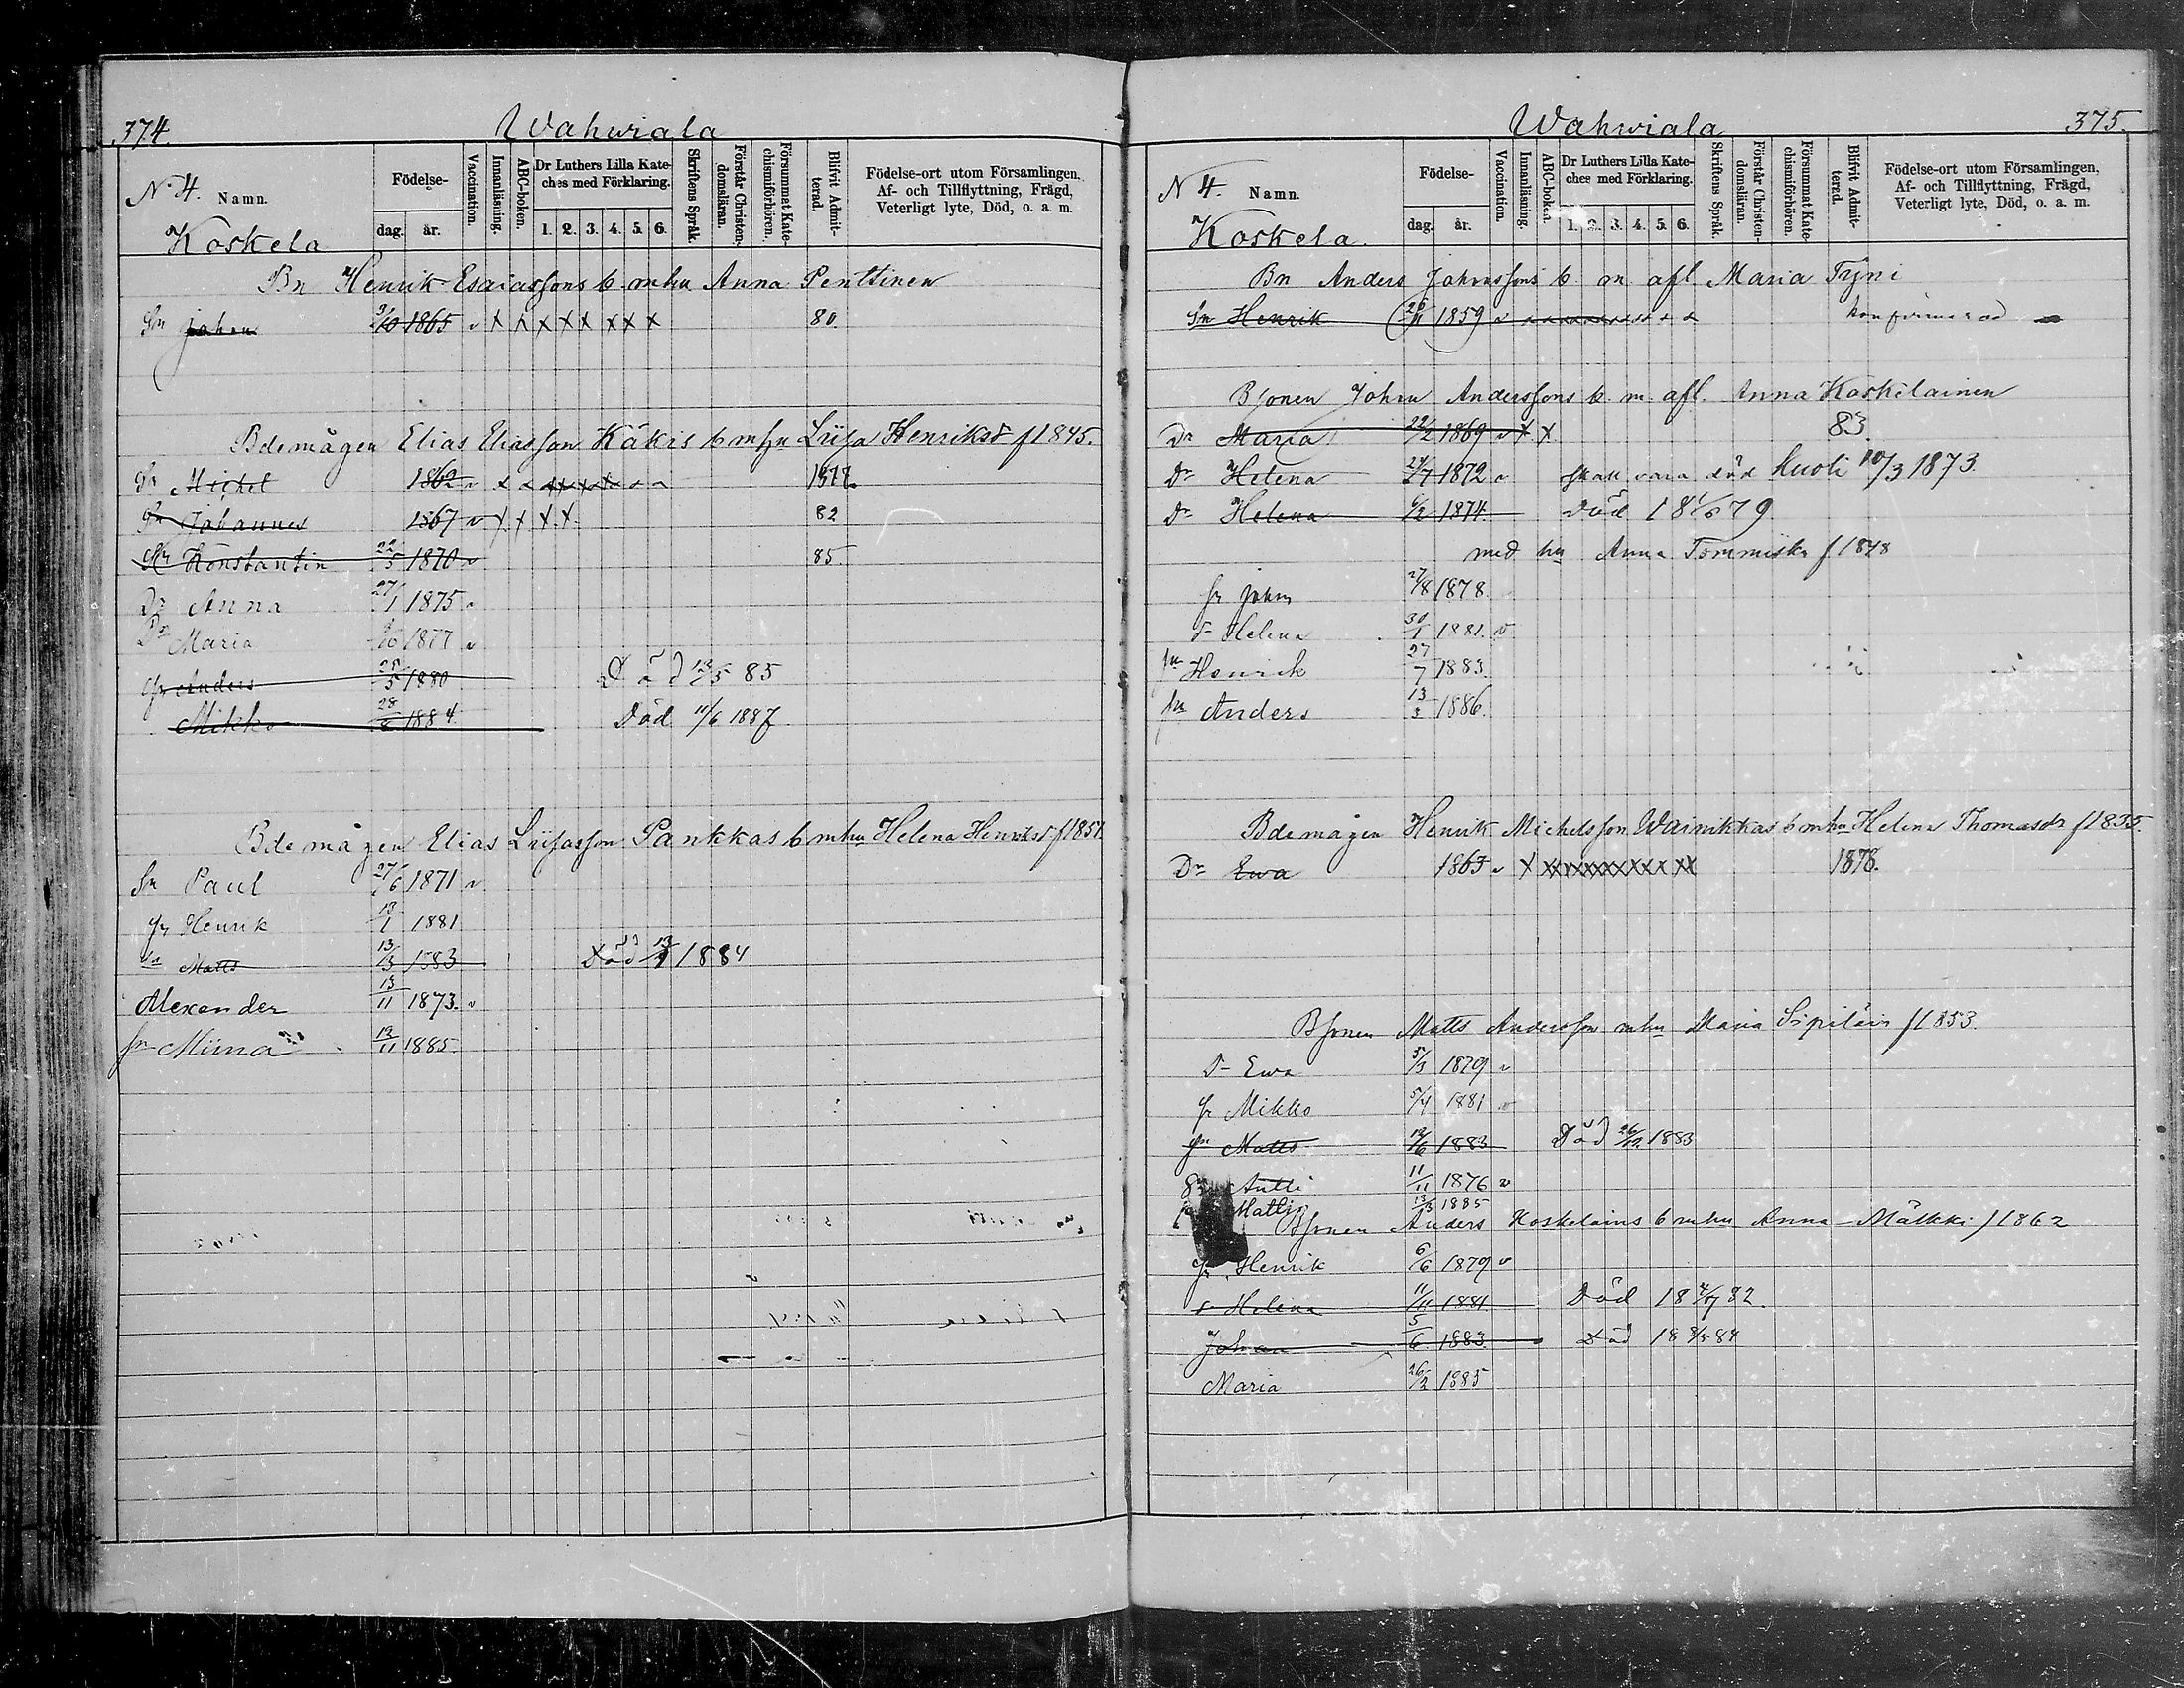 374. Wahwiala
N. 4. Namn. Födelse- Vaccination. Innanläsning. ABC-boken. Dr Luthers Lilla Kateches med Förklaring. Skriftens Språk. Förstår Christendomsläran. Försummat Katechismiförhören. Blifvit Admitterad. Födelse-ort utom Församlingen, Af- och Tillflyttning, Frägd, Veterligt lyte, Död, o. a. m.
dag. år. 1. 2. 3. 4. 5. 6.
Koskela
Bn Henrik Esaiassons b. mhu Anna Penttinen
Sn Johan 3/10 1865 v x x x x x x x x 80.
Bdemågen Elias Eliasson Käkis b mhu Liisa Henriksd f 1845.
Sn Michel 1862 v 1877.
Sn Johannes 1867 v x x x x 82
Sn Konstantin 22/5 1870 v 85.
Dr Anna 27/1 1875 v
Dr Maria 1877 v
Sn Anders 25/5 1880 Död 13/5 85
Mikko 28/8 1884 Död 11/6 1887
Bdemågen Elias Liisasson Pankkas b mhu Helena Henriksd f 1851.
Sn Paul 27/6 1871 v
Sn Henrik 13/1 1881
Sn Matts 13/3 1883 Död 1884
Alexander 13/11 1873. v
Miina 12/11 1885.
Wahwiala 375.
N 4. Namn. Födelse- Vaccination. Innanläsning. ABC-boken. Dr Luthers Lilla Kateches med Förklaring. Skriftens Språk. Förstår Christendomsläran. Försummat Katechismiförhören. Blifvit Admitterad. Födelse-ort utom Församlingen, Af- och Tillflyttning, Frägd, Veterligt lyte, Död, o. a. m.
dag. år. 1. 2. 3. 4. 5. 6.
Koskela.
Bn Anders Johanssons b. m afl Maria Tyni
Sn Henrik 1859 v konfirmerad
Bsonen Johan Anderssons b. m. afl. Anna Koskelainen
Dr Maria 22/2 1869 v x x 83.
Dr Helena 24/7 1872 v skall vara död kuoli 10/3 1873.
Dr Helena 6/2 1874. Död 18 1/6 79
med hu Anna Tommiska f. 1848
Sn Johan 27/8 1878.
Dr Helena 30/1 1881. v
Sn Henrik 27/7 1883.
Sn Anders 13/3 1886.
Bdemågen Henrik Michelsson Wainikkas b mhu Helena Thomasdr f 1835.
Dr Ewa 1863 v x x x x x x x x x x 1878.
Bsonen Matts Andersson mhu Maria Sipiläin f 1853.
Dr Ewa 5/3 1879 v
Sn Mikko 5/4 1881 v
Sn Matts 12/6 1883 Död 1883
Sn Antti 11/11 1876 v
Matti 13/3 1885
Bsonen Anders Koskelains b mhu Anna Mälkki f 1862
Sn Henrik 6/6 1879 v
Dr Helena 11/11 1881 Död 18 4/7 82.
Johan 5/6 1883. Död 18 8/5 84
Maria 26/2 1885